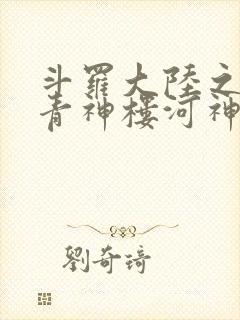 斗羅大陸之
青神樓河神
劉奇琦